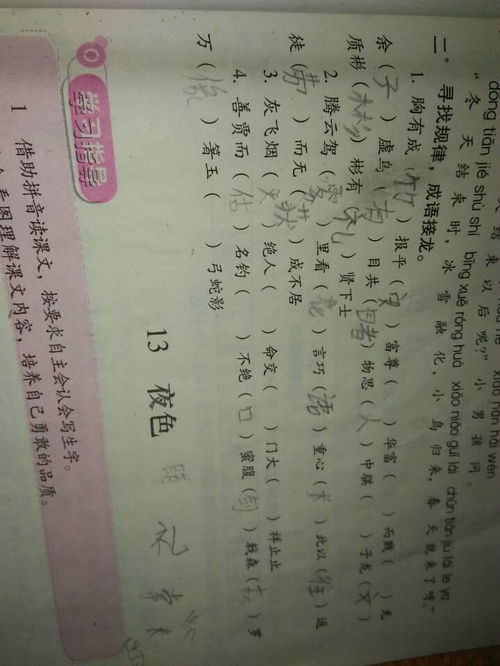 结束以后呢?”小男孩问。
dōng tiān jié shù shí bīng xuě róng huà xiǎo niǎo guī lái chūn tiān jiù lái le ya
“冬天结束时,冰雪融化,小鸟归来,春天就来了呀。”
二、寻找规律,成语接龙。
1. 胸有成(竹)报平(安)富尊( )华富( )而贱( )无
余(子)虚乌(有)目共(睹)物思(人)中骐( )于龙(文)
质彬(彬)彬有(礼)贤下士
2. 腾云驾(雾)里看(花)言巧(语)重心(长)此以(往)返
徒(劳)而无(获)成不居
3. 灰飞烟(灭)绝人( )命交( )门大( )祥止止
4. 善贾而(估)名钓( )不绝(口)蜜腹(剑)戟森(森)罗
万( )箸玉( )弓蛇影
13 夜色
学习指导
1 借助拼音读课文,按要求自主会认会写生字。
看图理解课文内容,培养自己勇敢的品质。